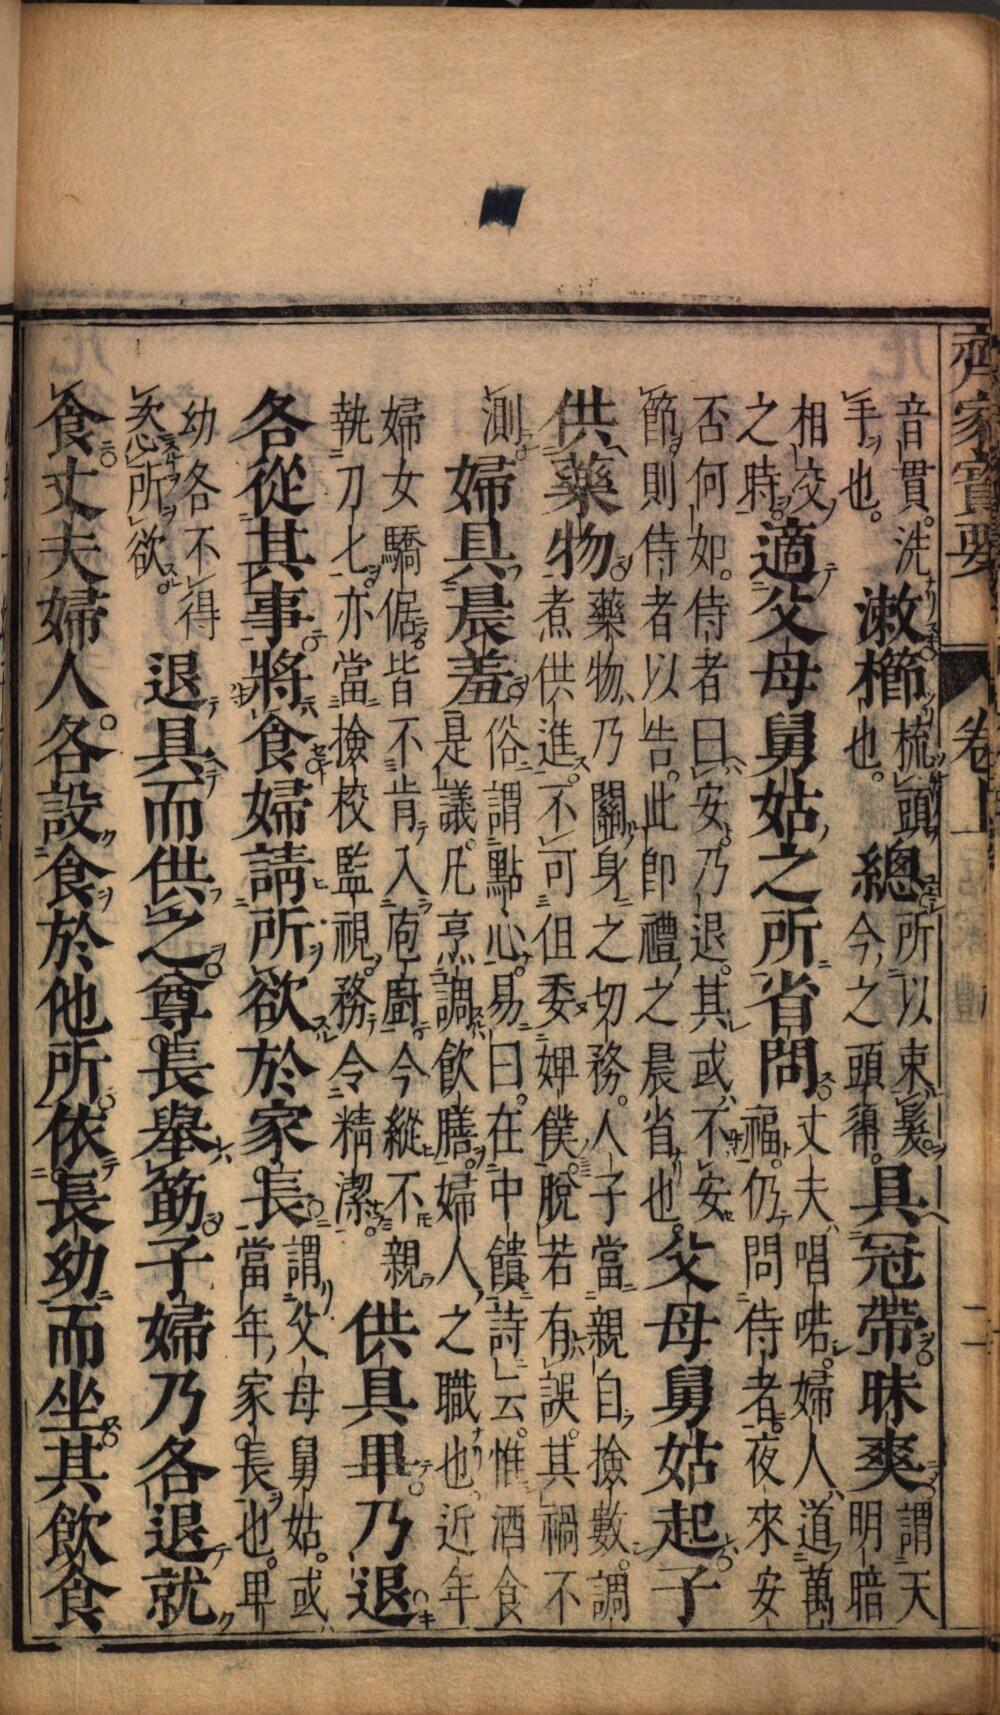 齊家寶要 卷上 二
音貫。洗手也。漱櫛梳頭也。總所以束髮。今之頭𢄼。具冠帶昧爽謂天明暗
相交之時。適父母舅姑之所省問丈夫唱喏。婦人道萬福。仍問侍者。夜來安
否何如。侍者曰。安。乃退。其或不安節。則侍者以告。此即禮之晨省也。父母舅姑起子
供藥物藥物。乃關身之切務。人子當親自撿數。調煮供進。不可但委婢僕。脫若有誤。其禍不
測。婦具晨羞俗謂點心。易曰。在中饋。詩云。惟酒食是議。凡烹調飲膳。婦人之職也。近年
婦女驕倨。皆不肯入庖廚。今縱不親執刀匕。亦當撿校監視。務令精潔。供具畢乃退
各從其事。將食婦請所欲於家長。謂父母舅姑。或當年家長也。卑
幼各不得恣所欲。退具而供之。尊長舉筯子婦乃各退就
食。丈夫婦人。各設食於他所。依長幼而坐。其飲食